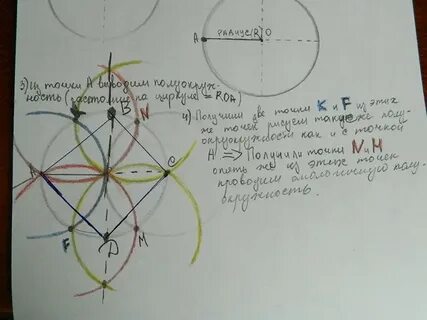 A РАДИУС(R) O
3) из точки А выводим полуокруж-
ность (расстояние на циркуле = ROA)
4) Получили две точки K и F из этих
же точек рисуем такуюже полу-
окружность как и с точкой
A => Получили точки N и M
опять же из этих точек
проводим аналогичную полу-
окружность.
K
B
N
A
C
F
D
M